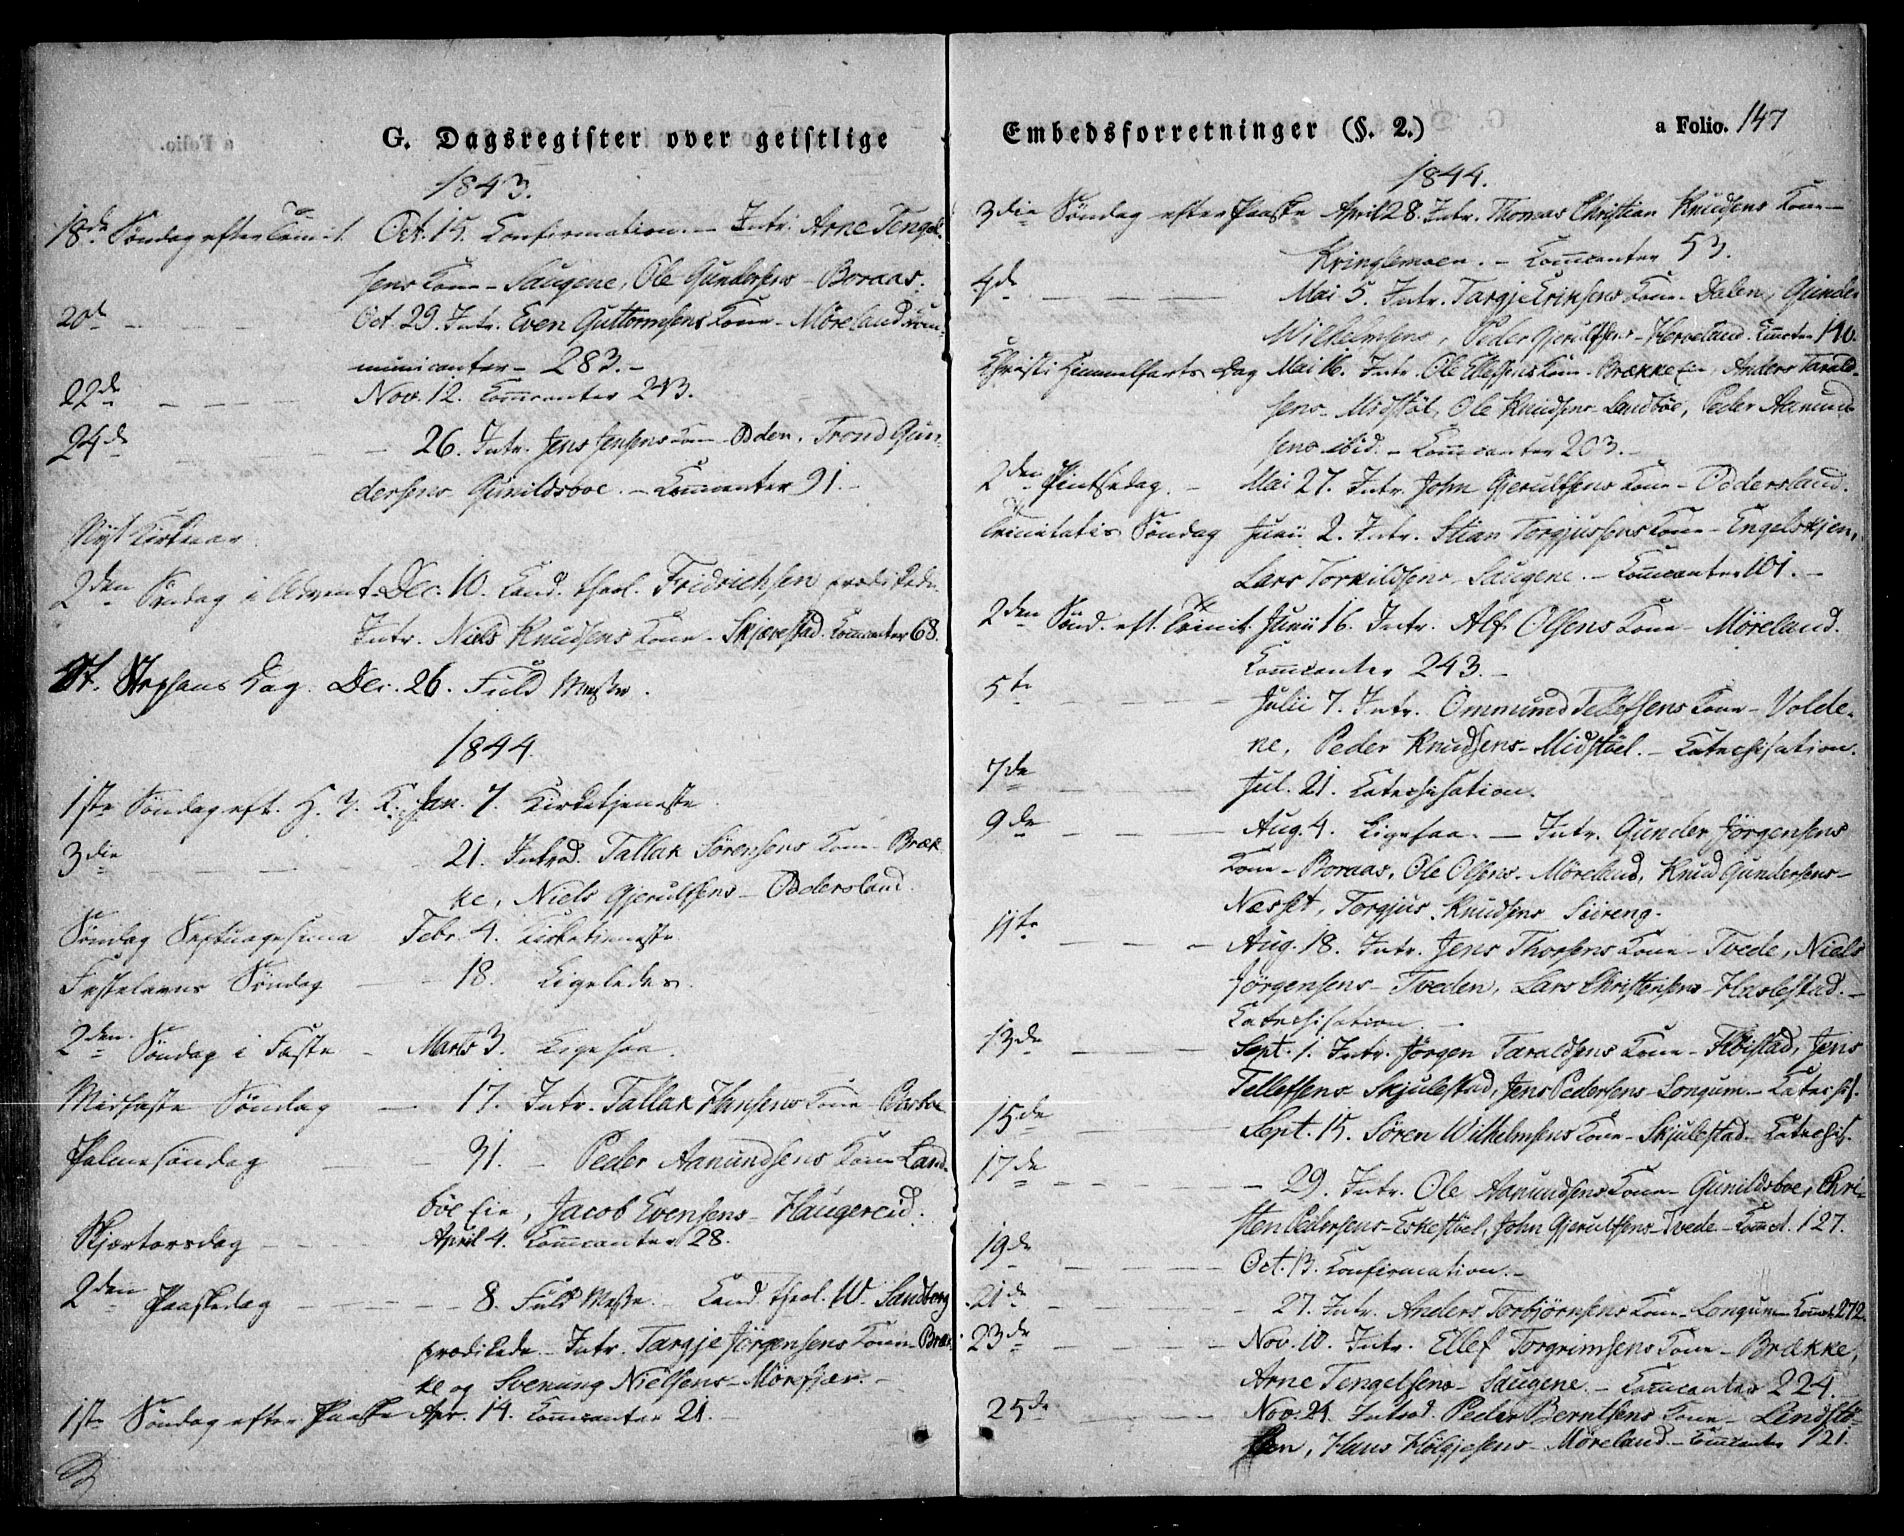 G. Dagsregister over geistlige
1843.
18de Søndag efter Trinit. Oct. 15. Confirmation. – Intr. Arne Tengel-
sens Kone – Saugene, Ole Gundersens – Boraas.
20de Oct. 29. Intr. Even Guttormsens Kone – Møreland. Com-
municanter – 283. –
22de Nov. 12. Communicanter 243.
24de – 26. Intr. Jens Jensens Kone – Odden, Trond Gun-
dersens Gunildsboe. – Comcanter 91. –
Nyt Kirkeaar.
2den Søndag i Advent Dec. 10. Cand. theol. Fridrichsen prædikede.
Intr. Niels Knudsens Kone – Skjærestad. Comcanter 68.
St. Stephans Dag. Dec. 26. Fuld Messe.
1844.
1ste Søndag eft. H. 3. K. Jan. 7. Kirketjeneste.
3die 21. Introd. Tallak Sørensens Kone – Bræk-
ke, Niels Gjerulfsens – Oddersland.
Søndag Septuagesima Febr. 4. Kirketjeneste
Fastelavns Søndag – 18. Ligeledes.
2den Søndag i Faste – Marts 3. Ligesaa.
Midfaste Søndag – 17. Intr. Tallak Hansens Kone –
Palmesøndag – 31. – Peder Aanundsens Kone Land-
böe Eie, Jacob Evensens – Haugereid.
Skjærtorsdag – April 4. Comcanter 28.
2den Paaskedag – 8. Fuld Messe. Cand. theol. W. Sandberg
prædikede. – Intr. Targje Jörgensens Kone – Bræk-
ke og Svenung Nielsens – Mörfjær. –
1ste Søndag efter Paaske Apr. 14. Comcanter 21. –
Embedsforretninger (§. 2.)
a Folio. 147
1844.
3die Søndag efter Paaske April 28. Intr. Thomas Christian Knudsens Kone –
Kringlemoen. – Comcanter 53.
4de Mai 5. Intr. Targje Eriksens Kone – Dalen, Gunder
Wilhelmsens, Peder Gjerulfsens – Herveland. Comcanter 140.
Christi Himmelfarts Dag Mai 16. Intr. Ole Ellefsens Kone – Brække Eie, Anders Tarald-
sens – Midstöl, Ole Knudsens – Landböe, Peder Aanund-
sens ibid. – Comcanter 203. –
2den Pintsedag. – Mai 27. Intr. John Gjerulfsens Kone – Oddersland.
Trinitatis Søndag Junii 2. Intr. Stian Torgjussens Kone – Engelskjen,
Lars Torkildsens – Saugene. – Comcanter 101. –
2den Sönd. eft. Trinit. Junii 16. Intr. Alf Olsens Kone – Møreland.
Comcanter 243. –
5te Julii 7. Intr. Ommund Tellefsens Kone – Volde-
ne, Peder Knudsens – Midstöel. – Catechisation.
7de Jul. 21. Catechisation.
9de Aug. 4. Ligesaa. – Intr. Gunder Jörgensens
Kone – Boraas, Ole Olsens – Møreland, Knud Gundersens –
Næsset, Torgjus Knudsens Siireng.
11te Aug. 18. Intr. Jens Thorsens Kone – Tvede, Niels
Jörgensens – Tveden, Lars Christensens – Haslestad. –
Catechisation. –
13de Sept. 1. Intr. Jörgen Taraldsens Kone – Fløistad, Jens
Tellefsens Skjulestad, Jens Pedersens – Longum. – Catechis.
15de Sept. 15. Søren Wilhelmsens Kone – Skjulestad – Catechis.
17de – 29. Intr. Ole Aanundsens Kone – Gunildsboe, Chri-
sten Pedersens – Eskestöel, John Gjerulfsens – Tvede – Comct. 127.
19de Oct. 13. Confirmation. –
21de – 27. Intr. Anders Torbjörnsens Kone – Longum – Comct. 272.
23de Nov. 10. Intr. Ellef Torgrimsens Kone – Brække,
Arne Tengelsens – Saugene. – Comcanter 224.
25de Nov. 24. Introd. Peder Berntsens Kone – Lindstö-
len, Hans Hölgjesens – Møreland – Comcanter 121.